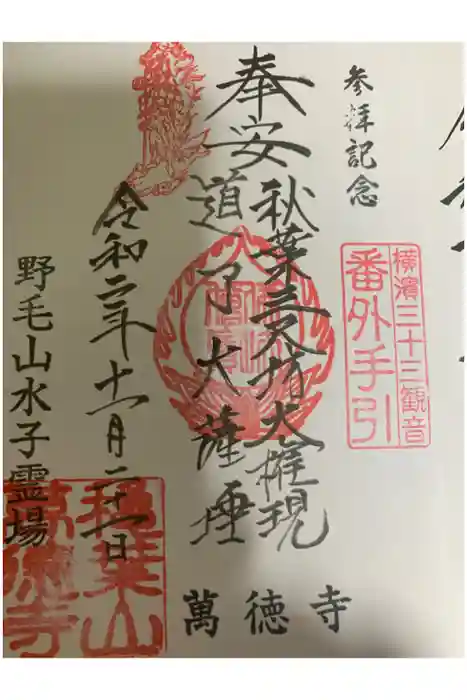 参拝記念
横濱三十三観音
番外手引
奉安
秋葉三尺坊大権現
道了大薩埵
令和二年十一月二十一日
野毛山水子霊場
萬徳寺